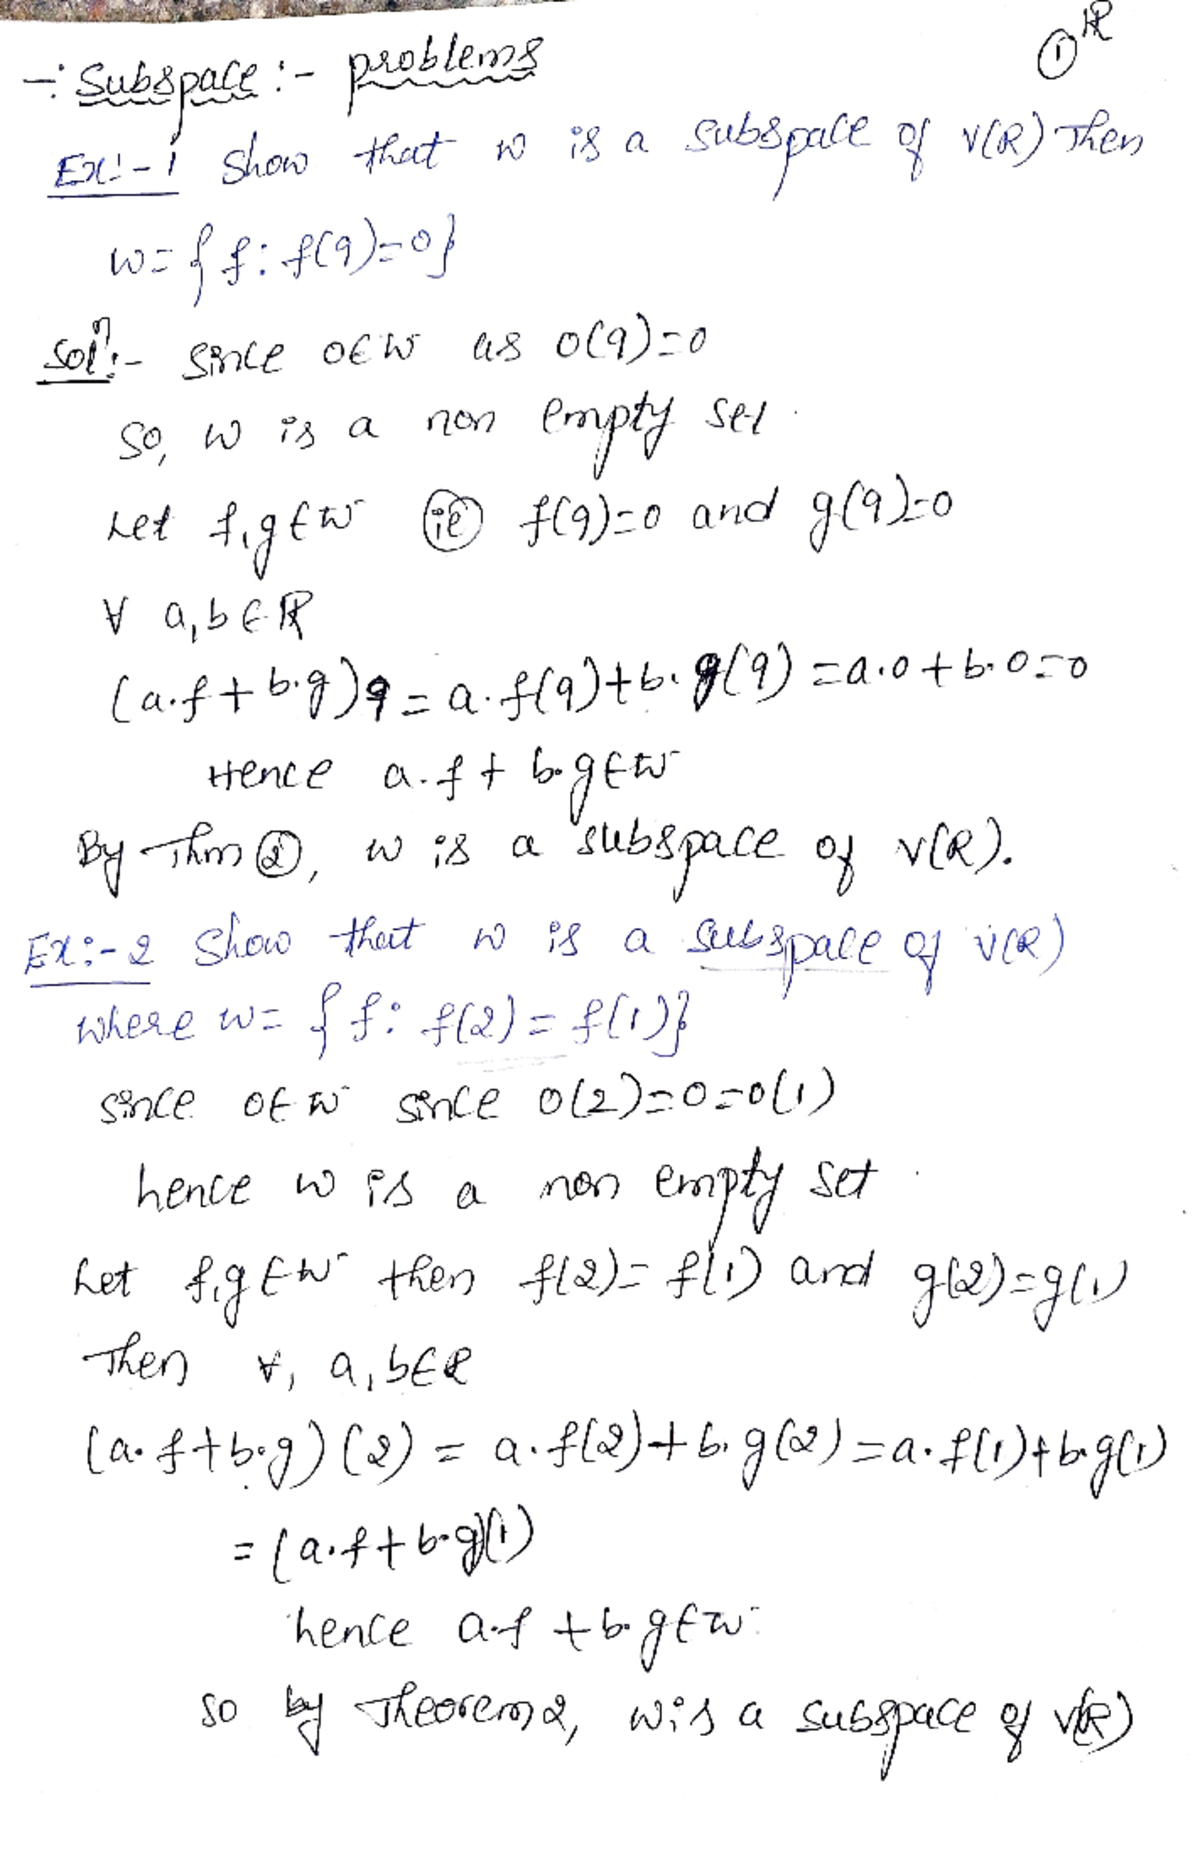 -: Subspace :- problems
① R
Ex:-1 Show that w is a subspace of V(R) Then
w = { f : f(9)=0}
Solⁿ:- Since 0∈W as 0(9)=0
So, W is a non empty set.
Let f,g∈W ie f(9)=0 and g(9)=0
∀ a,b∈R
(a.f + b.g)9 = a.f(9)+b.g(9) = a.0+b.0=0
Hence a.f + b.g∈W
By Thm ②, w is a subspace of V(R).
Ex:-2 Show that w is a subspace of V(R)
where w= { f: f(2) = f(1)}
since 0∈W since 0(2)=0=0(1)
hence w is a non empty set.
Let f,g∈W then f(2)= f(1) and g(2)=g(1)
Then ∀, a,b∈R
(a.f+b.g)(2) = a.f(2)+b.g(2)=a.f(1)+b.g(1)
= (a.f+b.g)(1)
hence a.f +b.g∈W.
So by Theorem 2, W is a subspace of V(R)